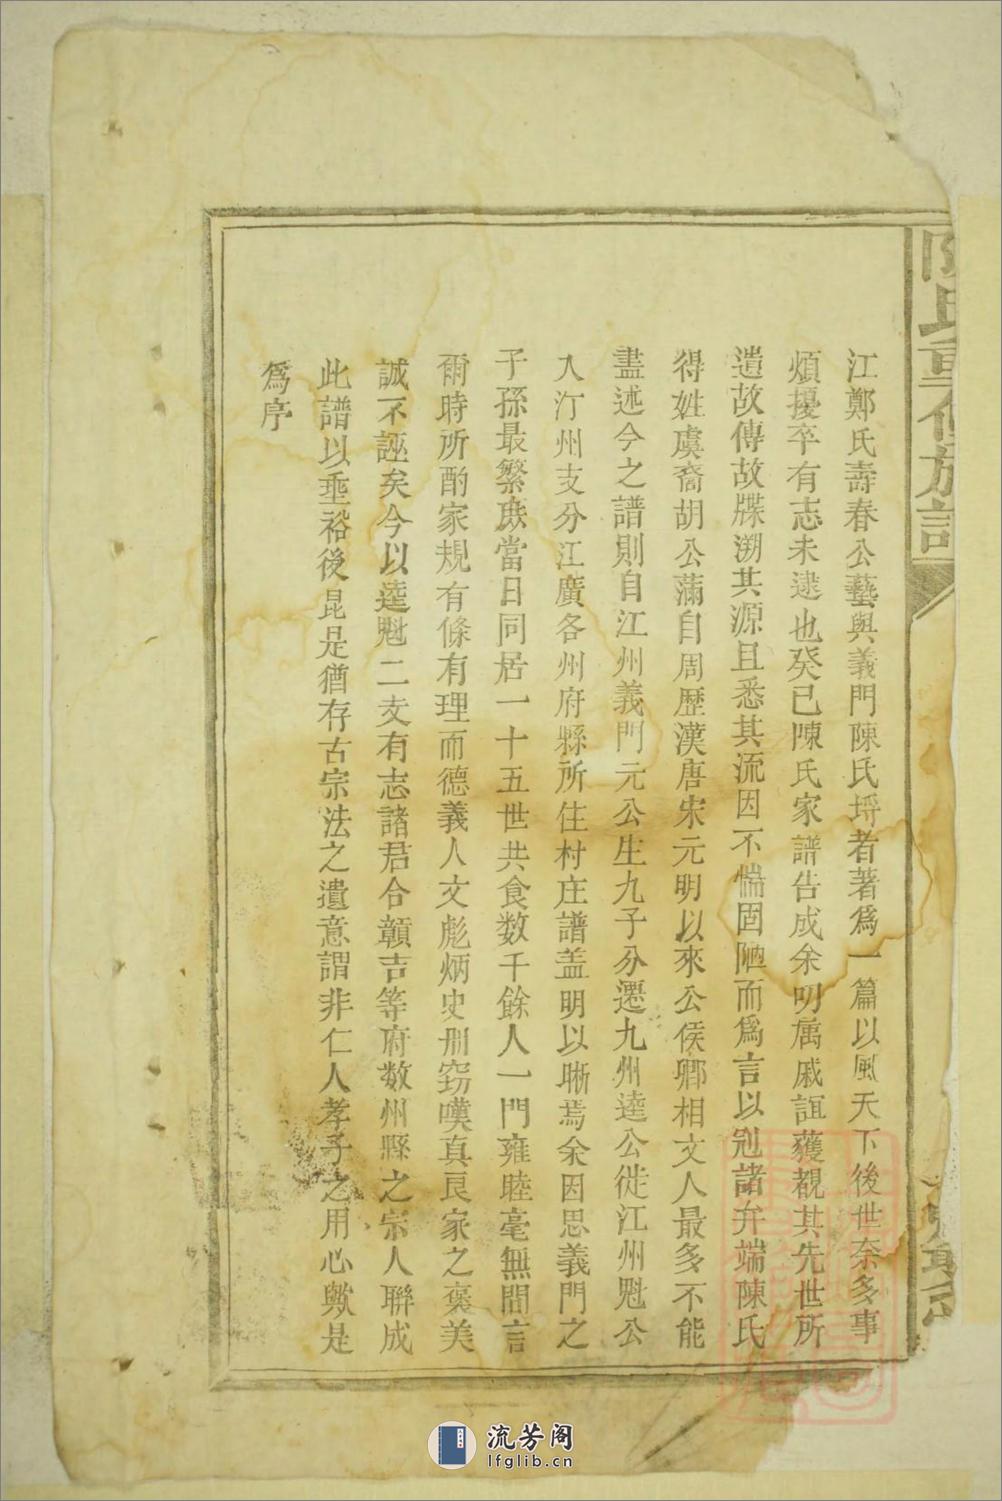 陳氏重修族譜
江鄭氏壽春公藝與義門陳氏埒者著爲一篇以風天下後世奈多事
煩擾卒有志未逮也癸巳陳氏家譜告成余叨属戚誼獲覩其先世所
遺故傳故牒溯其源且悉其流因不惴固陋而爲言以冠諸弁端陳氏
得姓虞裔胡公滿自周歷漢唐宋元明以來公侯卿相文人最多不能
盡述今之譜則自江州義門元公生九子分遷九州逵公徙江州魁公
入汀州支分江廣各州府縣所住村庄譜盖明以晰焉余因思義門之
子孫最繁䟽當日同居一十五世共食数千餘人一門雍睦毫無間言
爾時所酌家規有條有理而德義人文彪炳史册窃嘆真良家之褒美
誠不誣矣今以逵魁二支有志諸君合贛吉等府数州縣之宗人聯成
此譜以垂裕後昆是猶存古宗法之遺意謂非仁人孝子之用心歟是
爲序
流芳阁
lfglib.cn